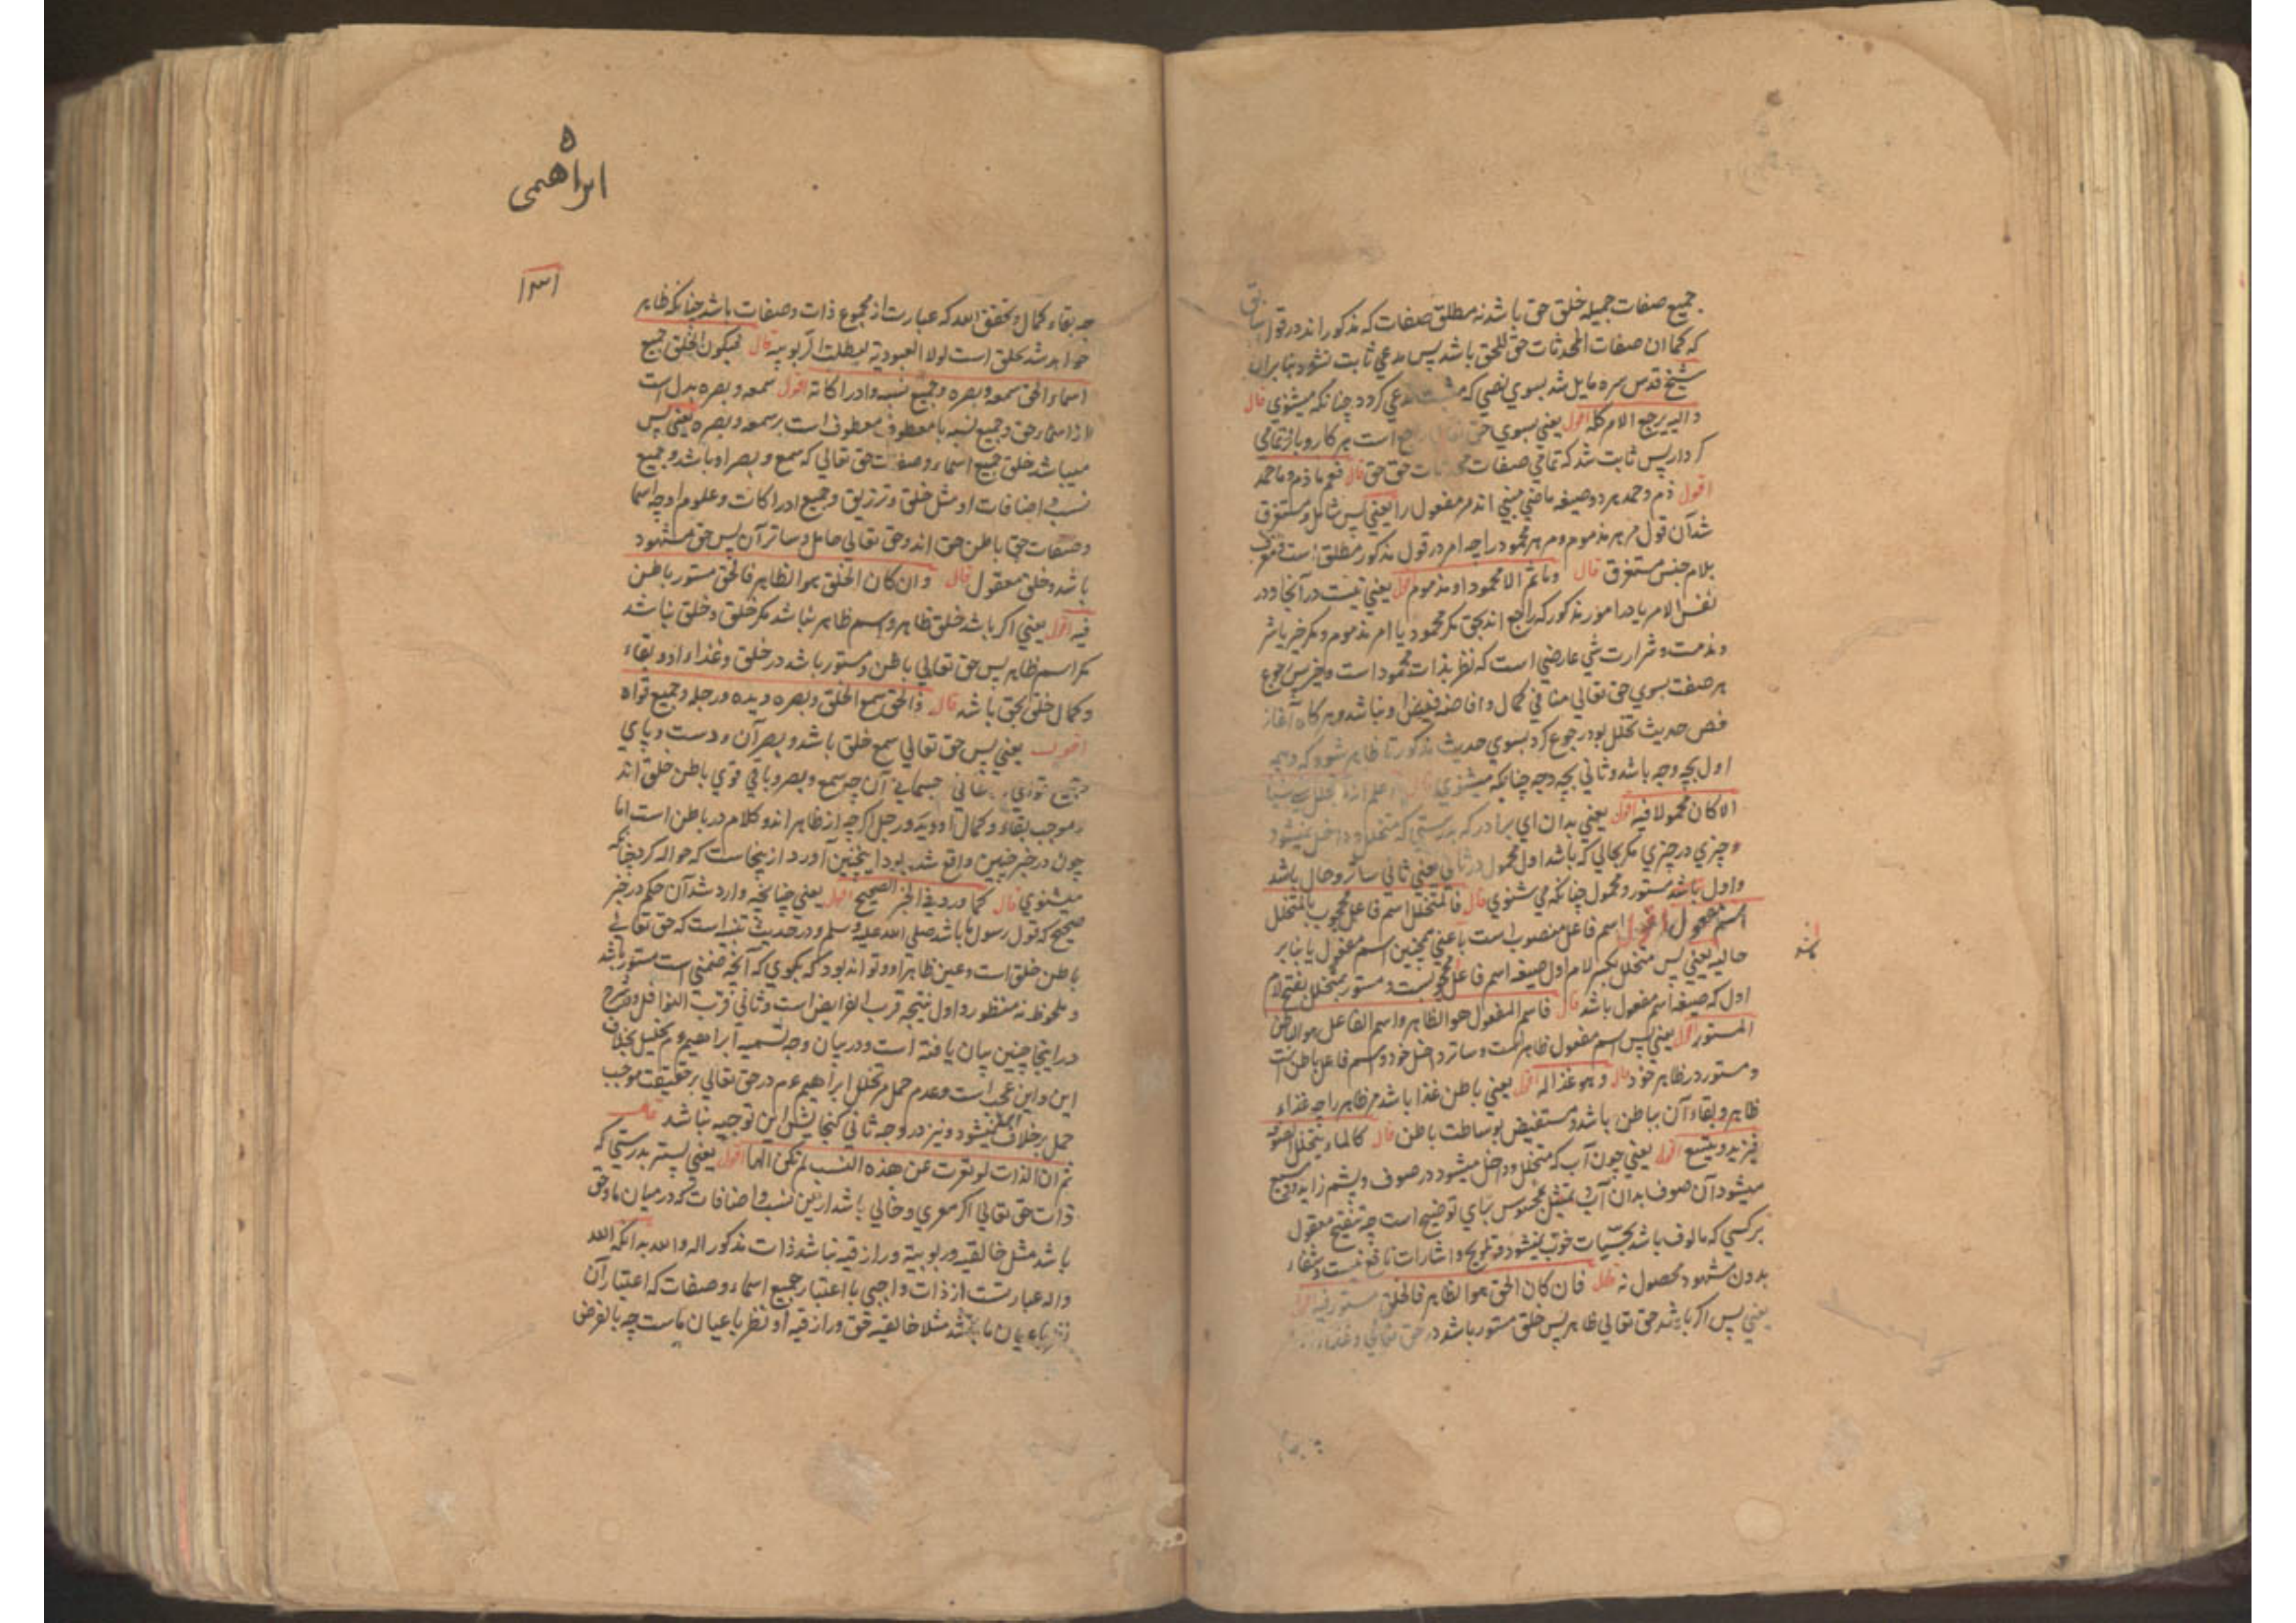 جمیع صفات جمیله خلق حق باشد نه مطلق صفات که مذکور اند در قول سابق
که کما ان صفات المحدثات حق للحق باشد پس مدعی ثابت نشود بنابران
شیخ قدس سره مایل شد بسوی نصی که مثبت مدعی کردد چنانکه میشنوی قال
والیه یرجع الامر کله اقول یعنی بسوی حق تعالی راجع است هر کار و بار تمامی
کردار پس ثابت شد که تمامی صفات محدثات حق حق قال فعم ما ذم وما حمد
اقول ذم و حمد هر دو صیغه ماضی مبنی اند مر مفعول را یعنی پس شامل و مستغرق
شد آن قول مر هر مذموم و مر هر محمود را چه امر در قول مذکور مطلق است معرف
بلام جنس مستغرق قال وما ثم الا محمود او مذموم اقول یعنی نیست در آنجا و در
نفس الامر یا در امور مذکور که راجع اند بحق مکر محمود یا امر مذموم و مکر خیر یا شر
و مذمت و شرارت شی عارضی است که نظر بذات محمود است و خیر پس رجوع
هر صفت بسوی حق تعالی منافی کمال و افاضه فیض او نباشد و هر کاه آغاز
فص حدیث تخلل بود رجوع کرد بسوی حدیث مذکور تا ظاهر شود که وجه
اول بچه وجه باشد و ثانی بچه وجه چنانکه میشنوی قال اعلم انه ما تخلل شی شیا
الا کان محمولا فیه اقول یعنی بدان ای برادر که بدرستی که متخلل و داخل نمیشود
چیزی در چیزی مکر بحالی که باشد اول محمول در ثانی یعنی ثانی ساتر و حامل باشد
و اول باشد مستور و محمول چنانکه می شنوی قال فالمتخلل اسم فاعل محجوب بالمتخلل
اسم مفعول اقول اسم فاعل منصوب است باعنی همچنین اسم مفعول یا بنابر
حالیه یعنی پس متخلل بکسر لام اول صیغه اسم فاعل محجوبست و مستور بمتخلل بفتح لام
اول که صیغه اسم مفعول باشد قال فاسم المفعول هو الظاهر واسم الفاعل هو الباطن
المستور اقول یعنی پس اسم مفعول ظاهر است و ساتر داخل خود و اسم فاعل باطن است
و مستور در ظاهر خود قال وهو غذا له اقول یعنی باطن غذا باشد مر ظاهر را چه غذاء
ظاهر و بقاء آن بباطن باشد و مستفیض بوساطت باطن قال کالماء یتخلل الصوفه
فیزید ویتسع اقول یعنی چون آب که متخلل و داخل میشود در صوف و پشم زاید و وسیع
میشود آن صوف بدان آب و تمثیل محسوس برای توضیح است چه تنقیح معقول
برکسی که مالوف باشد بحسیات خوب نمیشود و تلویح و اشارات نافع نیست و شفاء
بدون مشهود محصول نه قال فان کان الحق هو الظاهر فالخلق مستور فیه اقول
یعنی پس اکر باشد حق تعالی ظاهر پس خلق مستور باشد در حق تعالی و غذاء
ابراهمی
۱۳۱
چه بقاء کمال و تحقق الله که عبارت از مجموع ذات و صفات باشد چنانکه ظاهر
خواهد شد بخلق است لولا العبودیة لبطلت الربوبیه قال فیکون الخلق جمیع
اسماء الحق سمعه وبصره وجمیع نسبه وادراکاته اقول سمعه وبصره بدل است
از اسماء حق و جمیع نسبه با معطوف معطوف است بر سمعه وبصره یعنی پس
میباشد خلق جمیع اسماء و صفات حق تعالی که سمع و بصر او باشد و جمیع
نسب و اضافات او مثل خلق و ترزیق و جمیع ادراکات و علوم او چه اسما
و صفات حق باطن حق اند و حق تعالی حامل و ساتر آن پس حق مشهود
باشد و خلق معقول قال وان کان الخلق هو الظاهر فالحق مستور باطن
فیه اقول یعنی اکر باشد خلق ظاهر و اسم ظاهر نباشد مکر خلق و خلق نباشد
مکر اسم ظاهر پس حق تعالی باطن و مستور باشد در خلق و غذاء او و بقاء
و کمال خلق بحق باشد قال فالحق سمع الخلق وبصره ویده ورجله وجمیع قواه
اقول یعنی پس حق تعالی سمع خلق باشد و بصر آن و دست و پای
جمیع قوای جسمانی آن چه سمع و بصر و باقی قوی باطن خلق اند
و موجب بقاء و کمال او و ید و رجل اکرچه از ظاهر اند و کلام در باطن است اما
چون در خبر چنین واقع شده بود اینچنین آورد از ینجاست که حواله کرد چنانکه
میشنوی قال کما ورد فی الخبر الصحیح اقول یعنی چنانچه وارد شد آن حکم در خبر
صحیح که قول رسول ما باشد صلی الله علیه وسلم و در حدیث تنبیه است که حق تعالی
باطن خلق است و عین ظاهر او و تواند بود که بکوی که آنچه ضمنی است مستور باشد
و ملحوظ نه منظور و اول نتیجه قرب الفرایض است و ثانی قرب النوافل و در شرح
در اینجا چنین بیان یافته است و در بیان وجه تسمیه ابراهیم عم بخلیل بخلاف
این و این عجب است و عدم حمل مر تخلل ابراهیم عم در حق تعالی بر حقیقت موجب
حمل بر خلاف نمیشود و نیز در وجه ثانی کنجایش این توجیه نباشد قال
ثم ان الذات لو تعرت عن هذه النسب لم تکن الها اقول یعنی پستر بدرستی که
ذات حق تعالی اکر معری و خالی باشد ازین نسب و اضافات که در میان ما و حق
باشد مثل خالقیه و ربوبیة و رازقیه نباشد ذات مذکور اله والله بدانکه الله
واله عبارتست از ذات واجبی با اعتبار جمیع اسماء و صفات که اعتبار آن
باعیان ما باشد مثلا خالقیه حق و رازقیه او نظر باعیان ماست چه بالفرض